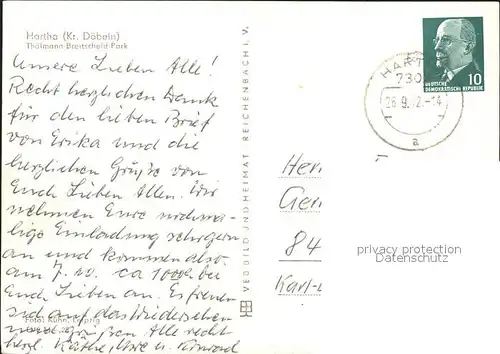 Hartha (Kr. Döbeln)
Thälmann-Breitscheid-Park
Unsere Lieben Alle!
Recht herzlichen Dank
für den lieben Brief
von Erika und die
herzlichen Grüße von
Euch Lieben Allen. Wir
nehmen Eure nochma-
lige Einladung sehr gern
an und kommen also
am 7.10. ca 1000h bei
Euch Lieben an. Es freuen
sich auf das Wiedersehen
und grüßen Alle recht
herzl. Käthe, Uwe u. Konrad
Foto: Kühn, Leipzig
VEB BILD UND HEIMAT REICHENBACH I. V.
HART
730
26.9.72.-14
a
10
DEUTSCHE
DEMOKRATISCHE REPUBLIK
Her
T
Ger
84
Karl-
privacy protection
Datenschutz